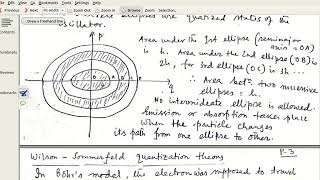 Draw a freehand line
discrete ellipses are quantized states of the
oscillator.
Area under the 1st ellipse (semimajor
axis = OA)
is h. Area under the 2nd ellipse (OB) is
2h, for 3rd ellipse (OC) is 3h ...
∴ Area betn two successive
ellipses = h.
No intermediate ellipse is allowed.
Emission or absorption takes place
When the particle changes
its path from one ellipse to other.
P
q
P-3
Wilson - Sommerfeld quantization theory
In Bohr's model, the electron was supposed to travel